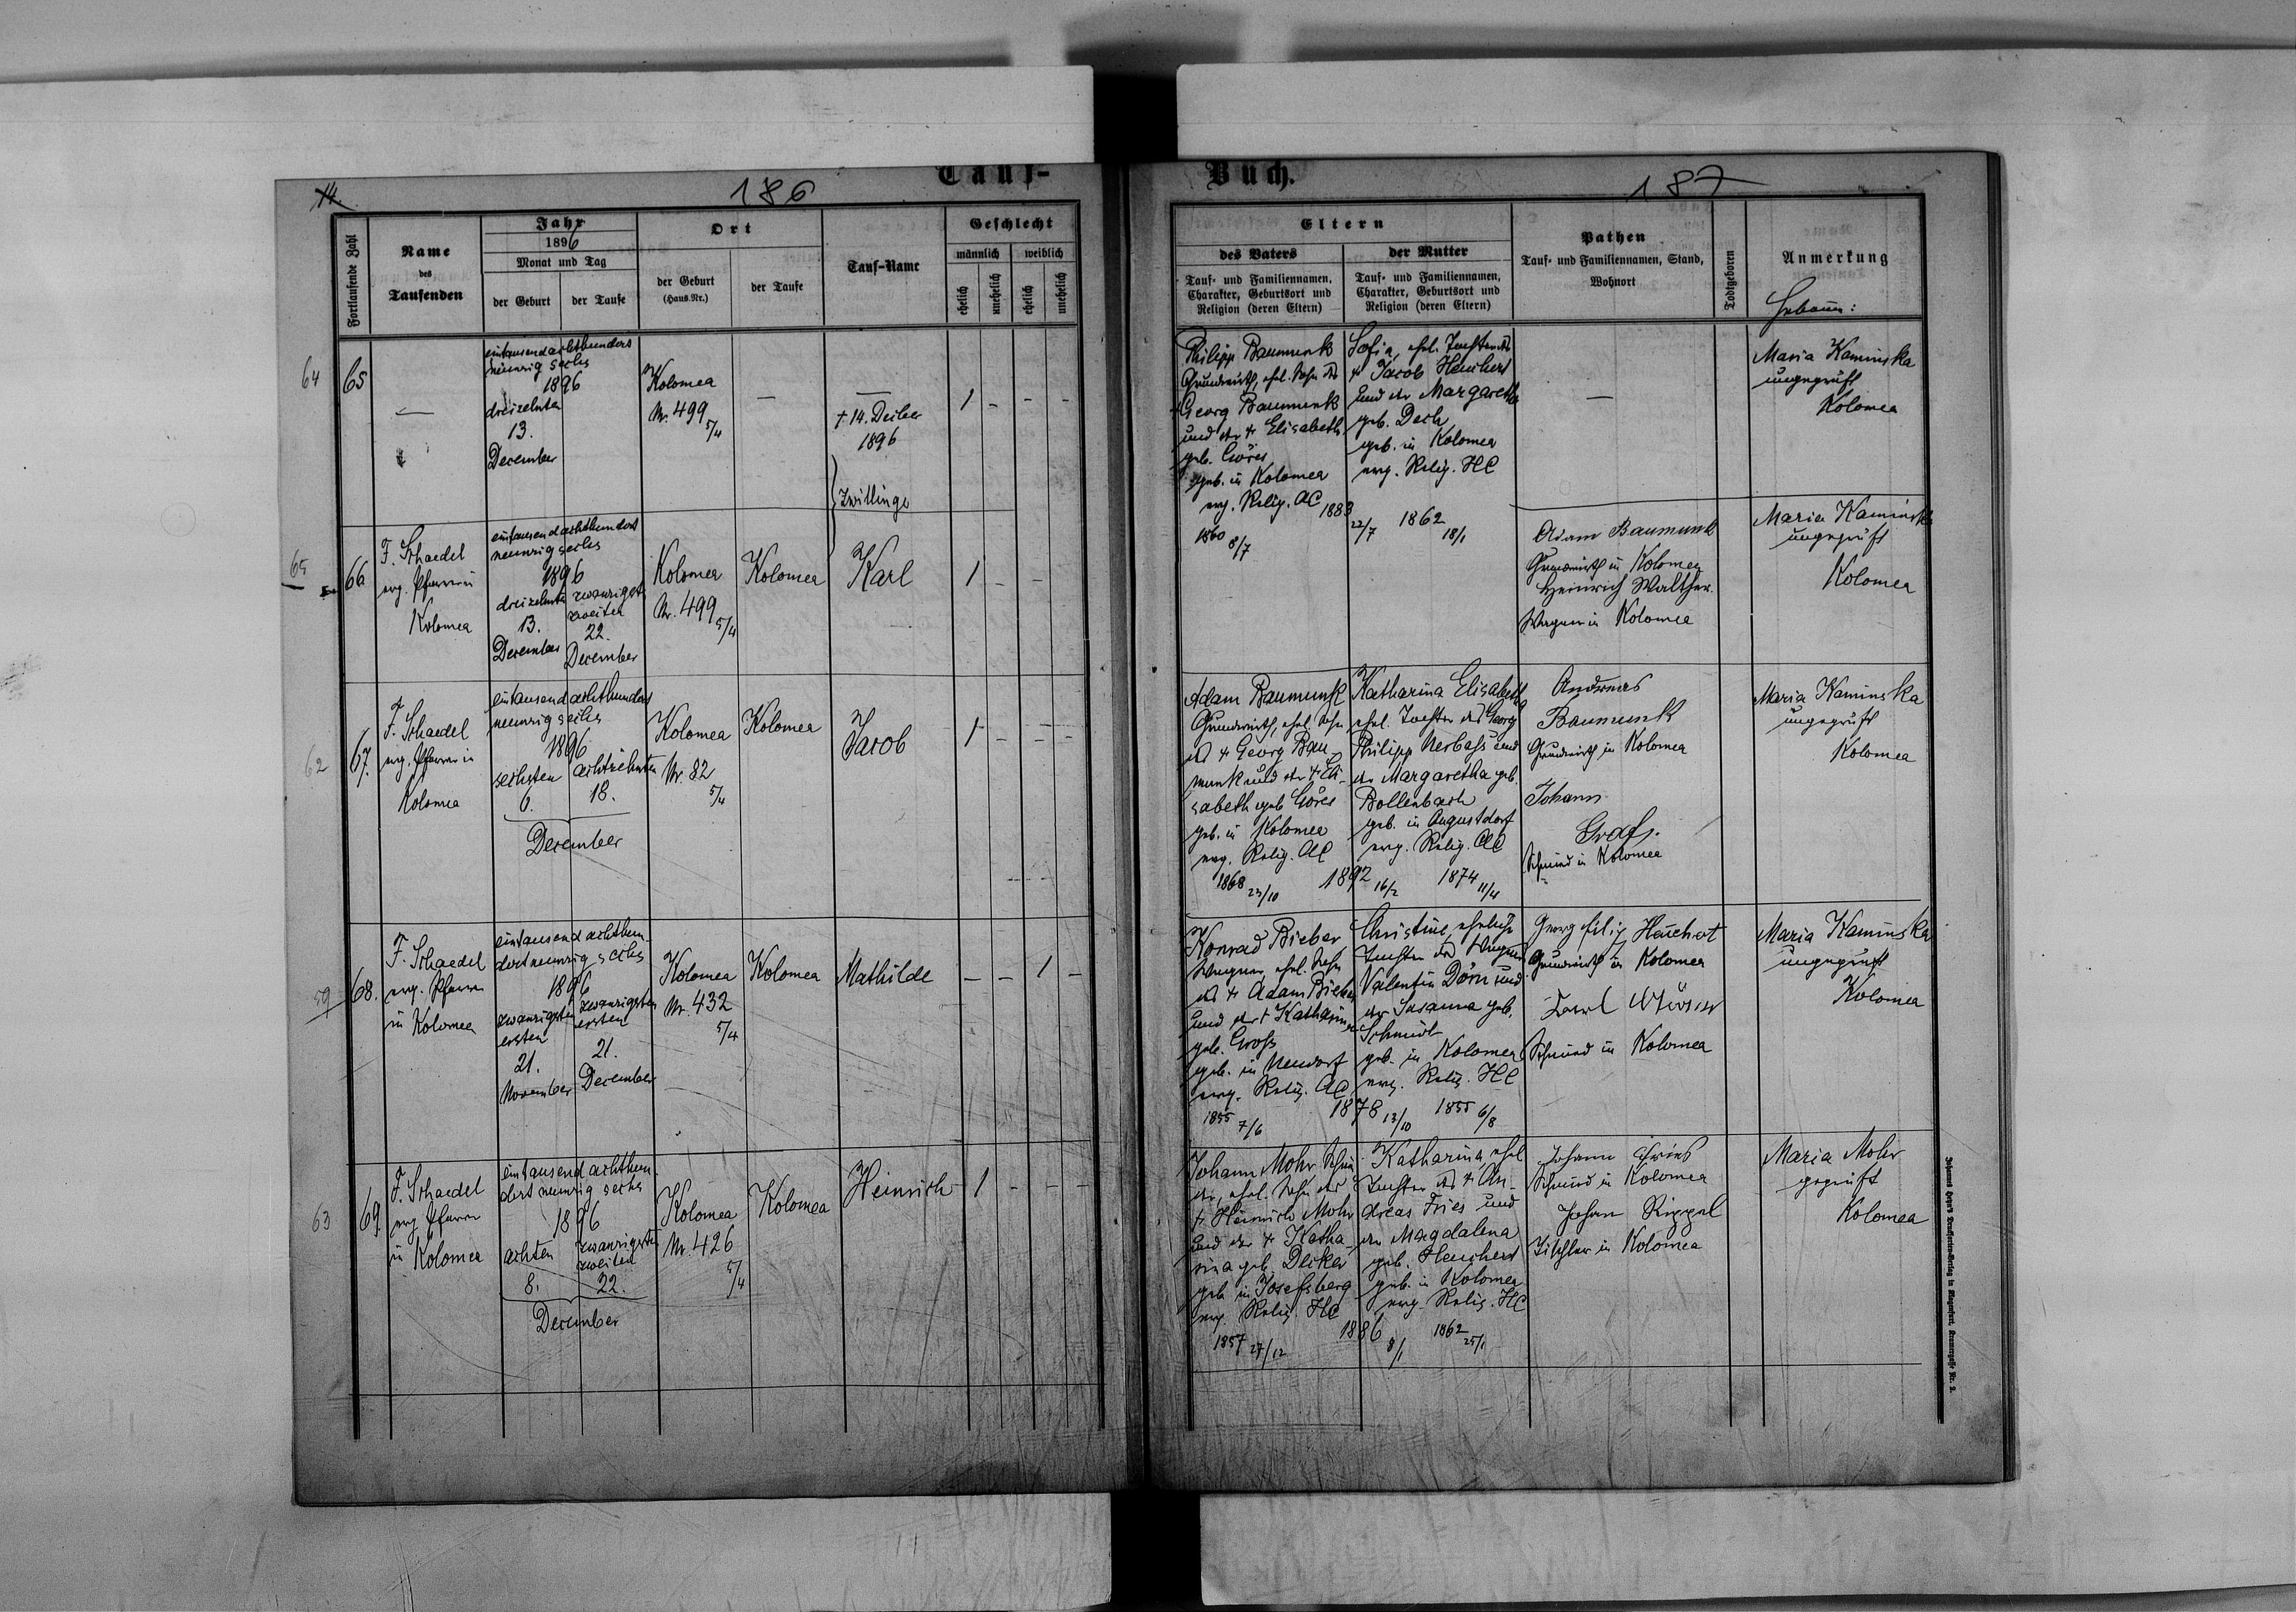 14.
186
Tauf-
Fortlaufende Zahl
Name
des
Taufenden
Jahr
1896
Monat und Tag
der Geburt
der Taufe
Ort
der Geburt
(Haus-Nr.)
der Taufe
Tauf-Name
Geschlecht
männlich
weiblich
ehelich
unehelich
ehelich
unehelich
64
65
—
eintausendachthundert
neunzig sechs
1896
dreizehnten
13.
December
Kolomea
Nr. 499
5/4
—
—
† 14. Decber
1896
Zwillinge
1 - - -
65
66
F. Schaedel
evg. Pfarrer in
Kolomea
eintausendachthundert
neunzig sechs
1896
dreizehnten
13.
December
zwanzigsten
zweiten
22.
December
Kolomea
Nr. 499
5/4
Kolomea
Karl
1 - -
62
67.
F. Schaedel
evg. Pfarrer in
Kolomea
eintausend achthundert
neunzig sechs
1896
sechsten
6.
achtzehnten
18.
December
Kolomea
Nr. 82
5/4
Kolomea
Jacob
1 - - -
59
68.
F. Schaedel
evg. Pfarrer
in Kolomea
eintausend achthun-
dert neunzig sechs
1896
zwanzigsten
ersten
21.
November
zwanzigsten
ersten
21.
December
Kolomea
Nr. 432
5/4
Kolomea
Mathilde
- - 1 -
63
69.
F. Schaedel
evg. Pfarrer
in Kolomea
eintausend achthun-
dert neunzig sechs
1896
achten
8.
zwanzigsten
zweiten
22.
December
Kolomea
Nr. 426
5/4
Kolomea
Heinrich
1 - - -
Buch.
187
Eltern
des Vaters
Tauf- und Familiennamen,
Charakter, Geburtsort und
Religion (deren Eltern)
der Mutter
Tauf- und Familiennamen,
Charakter, Geburtsort und
Religion (deren Eltern)
Pathen
Tauf- und Familiennamen, Stand,
Wohnort
Todtgeboren
Anmerkung
Hebamme:
Philipp Baumunk
Grundwirth, ehel. Sohn des
† Georg Baumunk
und der † Elisabeth
geb. Göres
geb. in Kolomea
evg. Relig. AC
1860 8/7
1883
22/7
Sofia, ehel. Tochter des
† Jacob Heuchert
und der Margaretha
geb. Dech
geb. in Kolomea
evg. Relig. HC
1862
18/1
—
Maria Kaminska
ungeprüft
Kolomea
Adam Baumunk
Grundwirth in Kolomea
Heinrich Walther.
Wagner in Kolomea
Maria Kaminska
ungeprüft
Kolomea
Adam Baumunk
Grundwirth, ehel. Sohn
des † Georg Bau-
munk und der † Eli-
sabeth geb. Göres
geb. in Kolomea
evg. Relig. AC
1868 23/10
1892 16/2
Katharina Elisabeth
ehel. Tochter des Georg
Philipp Nerbass und
der Margaretha geb.
Bollenbach
geb. in Augustdorf
evg. Relig. AC
1874 11/4
Andreas
Baumunk
Grundwirth in Kolomea
Johann
Graf.
Schmied in Kolomea
Maria Kaminska
ungeprüft
Kolomea
Konrad Bieber
Wagner, ehel. Sohn
des † Adam Bieber
und der † Katharina
geb. Gross
geb. in Neudorf
evg. Relig. AC
1855 7/6
1878 13/10
Christine, eheliche
Tochter des Wagners
Valentin Dörn und
der Susanna geb.
Schmidt
geb. in Kolomea
evg. Relig. HC
1855 6/8
Georg Heuchert
Grundwirth in Kolomea
Schmied in Kolomea
Maria Kaminska
ungeprüft
Kolomea
Johann Mohr Schmi-
der, ehel. Sohn des
† Heinrich Mohr
und der † Katha-
rina geb. Decker
geb. in Josefsberg
evg. Relig. HC
1857 27/12
1886
8/1
Katharina, ehel.
Tochter des † An-
dreas Fries und
der Magdalena
geb. Heuchert
geb. in Kolomea
evg. Relig. HC
1862 25/1
Johann Fries
Schmied in Kolomea
Johann Rippel
Tischler in Kolomea
Maria Mohr
geprüft
Kolomea